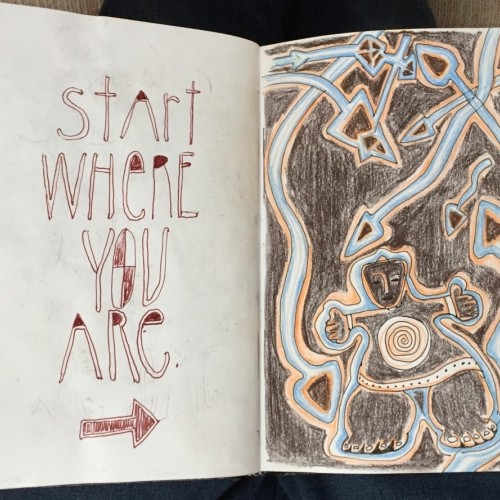 stArt
WHeRE
YOU
ARe.